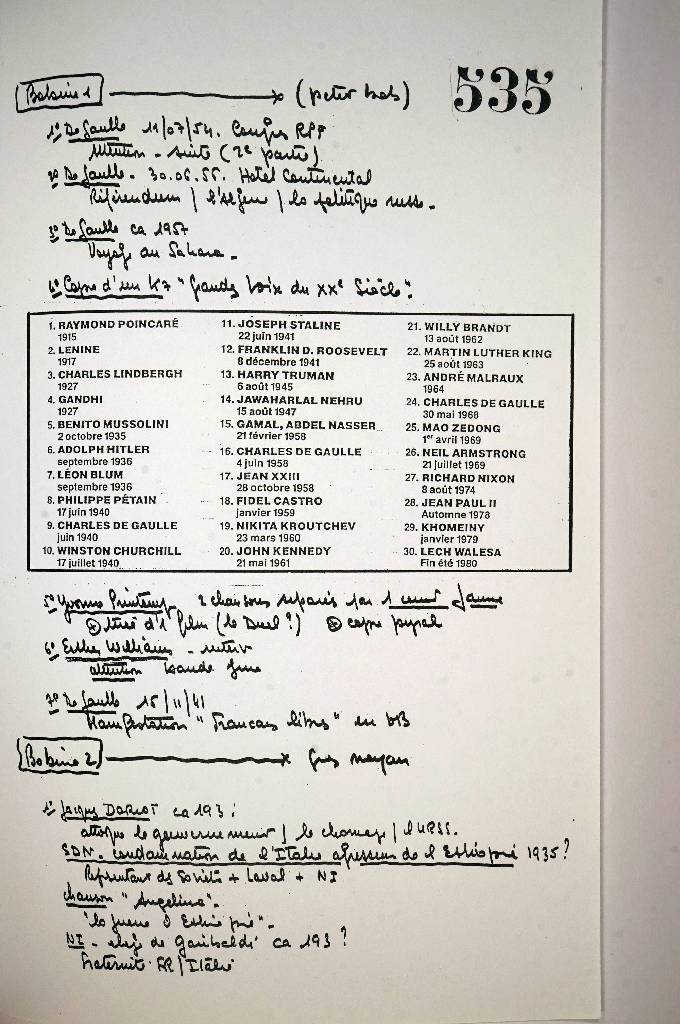 535
Bobine 1 (petit bob)
1º De Gaulle 11/07/54. Congrès RPF
Attention - suite (2e partie)
2º De Gaulle - 30.06.55. Hotel Continental
Référendum / l'Algérie / la politique russe -
3º De Gaulle ca 1957
Voyage au Sahara -
4º Copie d'un K7 "Grandes Voix du XXe Siècle".
1. RAYMOND POINCARÉ
1915
2. LENINE
1917
3. CHARLES LINDBERGH
1927
4. GANDHI
1927
5. BENITO MUSSOLINI
2 octobre 1935
6. ADOLPH HITLER
septembre 1936
7. LÉON BLUM
septembre 1936
8. PHILIPPE PÉTAIN
17 juin 1940
9. CHARLES DE GAULLE
juin 1940
10. WINSTON CHURCHILL
17 juillet 1940
11. JOSEPH STALINE
22 juin 1941
12. FRANKLIN D. ROOSEVELT
8 décembre 1941
13. HARRY TRUMAN
6 août 1945
14. JAWAHARLAL NEHRU
15 août 1947
15. GAMAL, ABDEL NASSER
21 février 1958
16. CHARLES DE GAULLE
4 juin 1958
17. JEAN XXIII
28 octobre 1958
18. FIDEL CASTRO
janvier 1959
19. NIKITA KROUTCHEV
23 mars 1960
20. JOHN KENNEDY
21 mai 1961
21. WILLY BRANDT
13 août 1962
22. MARTIN LUTHER KING
25 août 1963
23. ANDRÉ MALRAUX
1964
24. CHARLES DE GAULLE
30 mai 1968
25. MAO ZEDONG
1er avril 1969
26. NEIL ARMSTRONG
21 juillet 1969
27. RICHARD NIXON
8 août 1974
28. JEAN PAUL II
Automne 1978
29. KHOMEINY
janvier 1979
30. LECH WALESA
Fin été 1980
5º Yvonne Printemps 2 chansons séparées par 1 amorce jaune
tiré d'1 film (le Duel?) copie pyral
6º Esther Williams - interv
attention bande fine
7º De Gaulle 15/11/41
Manifestation "Français libres" en GB
Bobine 2 gros noyau
1º Jacques DORIOT ca 193 :
attaque le gouvernement / le chomage / l'URSS.
SDN. condamnation de l'Italie agresseur de l'Ethiopie 1935?
Représentant des Soviets + Laval + NI
chanson "Angelina".
"la guerre d'Ethiopie".
NI - éloge de Garibaldi ca 193?
fraternité FR/Italie